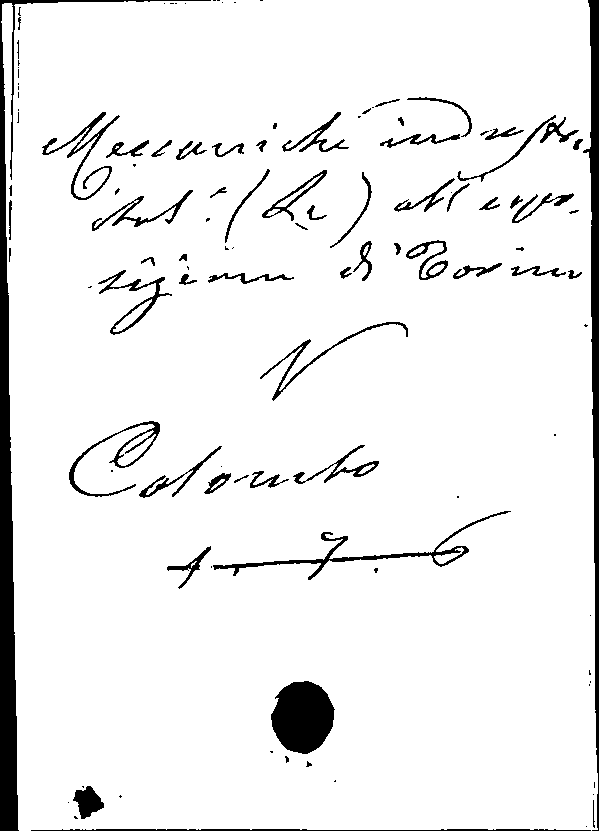 Meccaniche industri
ital.e (Le) all'espo-
sizione di Torino
V
Colombo
1. 7. 6